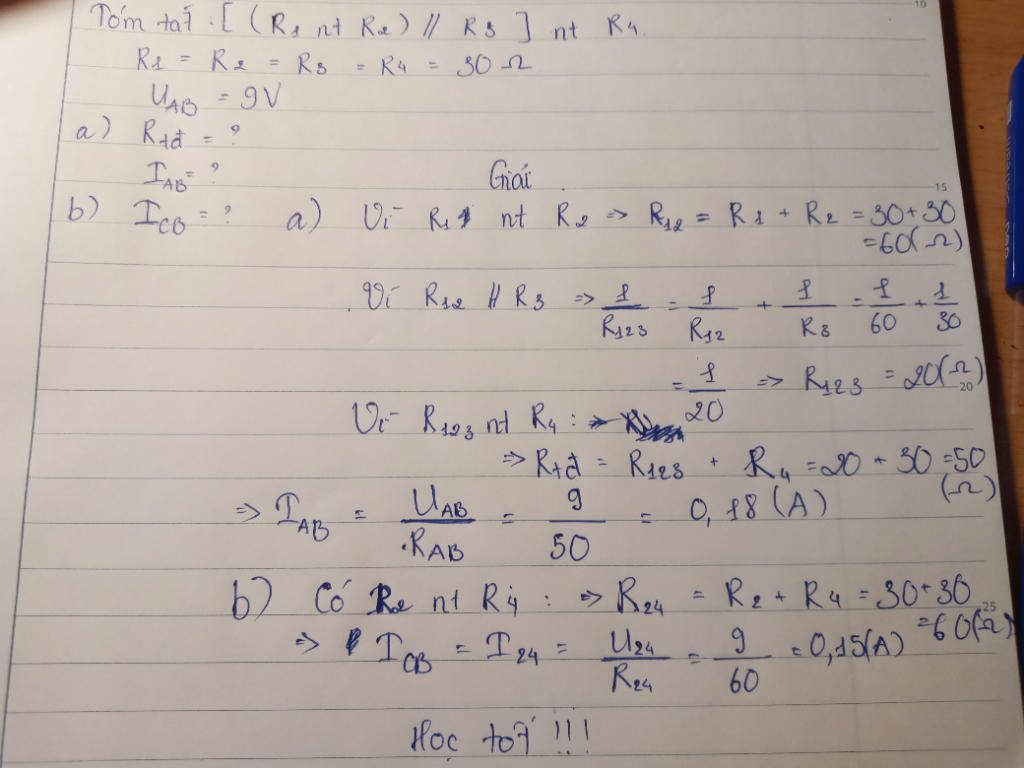 Tóm tắt : [ (R1 nt R2) // R3 ] nt R4.
R1 = R2 = R3 = R4 = 30 Ω
UAB = 9V
a) Rtđ = ?
IAB = ?
Giải
b) ICB = ?
a) Vì R1 nt R2 => R12 = R1 + R2 = 30 + 30
= 60 (Ω)
Vì R12 // R3 => 1/R123 = 1/R12 + 1/R3 = 1/60 + 1/30
= 1/20 => R123 = 20 (Ω)
Vì R123 nt R4 :
=> Rtđ = R123 + R4 = 20 + 30 = 50
(Ω)
=> IAB = UAB/RAB = 9/50 = 0,18 (A)
b) Có R2 nt R4 : => R24 = R2 + R4 = 30 + 30
= 60 (Ω)
=> ICB = I24 = U24/R24 = 9/60 = 0,15 (A)
Học tốt !!!
10
15
20
25